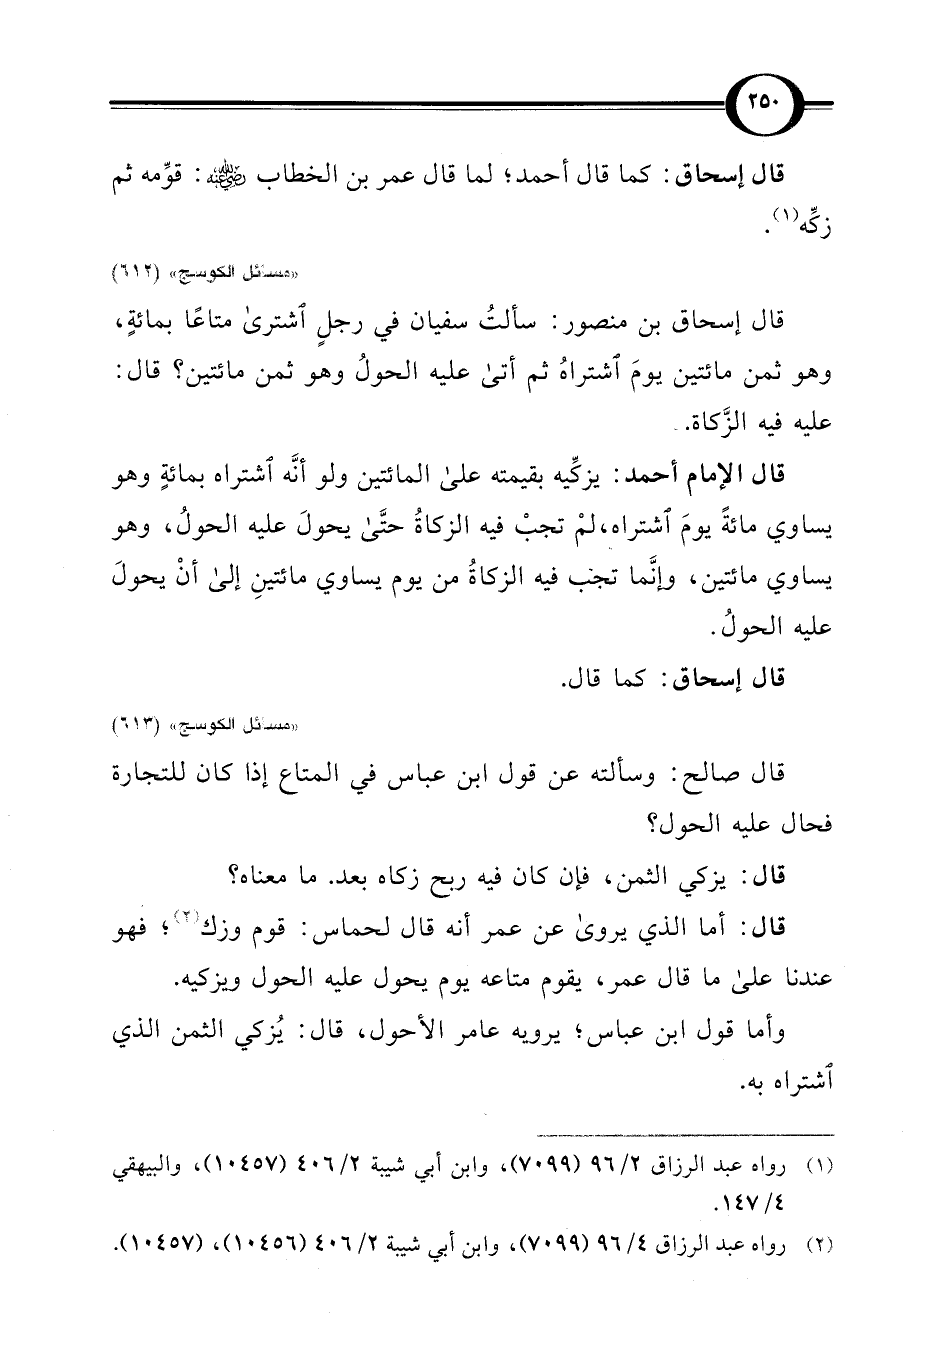 ٢٥٠
قال إسحاق: كما قال أحمد؛ لما قال عمر بن الخطاب رضي الله عنه: قوِّمه ثم
زكِّه(١).
«مسائل الكوسج» (٦١٢)
قال إسحاق بن منصور: سألتُ سفيان في رجلٍ ٱشترىٰ متاعًا بمائةٍ،
وهو ثمن مائتين يومَ ٱشتراهُ ثم أتىٰ عليه الحولُ وهو ثمن مائتين؟ قال:
عليه فيه الزَّكاة.
قال الإمام أحمد: يزكِّيه بقيمته علىٰ المائتين ولو أنَّه ٱشتراه بمائةٍ وهو
يساوي مائةً يومَ ٱشتراه،لمْ تجبْ فيه الزكاةُ حتَّىٰ يحولَ عليه الحولُ، وهو
يساوي مائتين، وإنَّما تجب فيه الزكاةُ من يوم يساوي مائتينِ إلىٰ أنْ يحولَ
عليه الحولُ.
قال إسحاق: كما قال.
«مسائل الكوسج» (٦١٣)
قال صالح: وسألته عن قول ابن عباس في المتاع إذا كان للتجارة
فحال عليه الحول؟
قال: يزكي الثمن، فإن كان فيه ربح زكاه بعد. ما معناه؟
قال: أما الذي يروىٰ عن عمر أنه قال لحماس: قوم وزك(٢)؛ فهو
عندنا علىٰ ما قال عمر، يقوم متاعه يوم يحول عليه الحول ويزكيه.
وأما قول ابن عباس؛ يرويه عامر الأحول، قال: يُزكي الثمن الذي
ٱشتراه به.
(١) رواه عبد الرزاق ٢/ ٩٦ (٧٠٩٩)، وابن أبي شيبة ٢/ ٤٠٦ (١٠٤٥٧)، والبيهقي
٤/ ١٤٧.
(٢) رواه عبد الرزاق ٤/ ٩٦ (٧٠٩٩)، وابن أبي شيبة ٢/ ٤٠٦ (١٠٤٥٦)، (١٠٤٥٧).